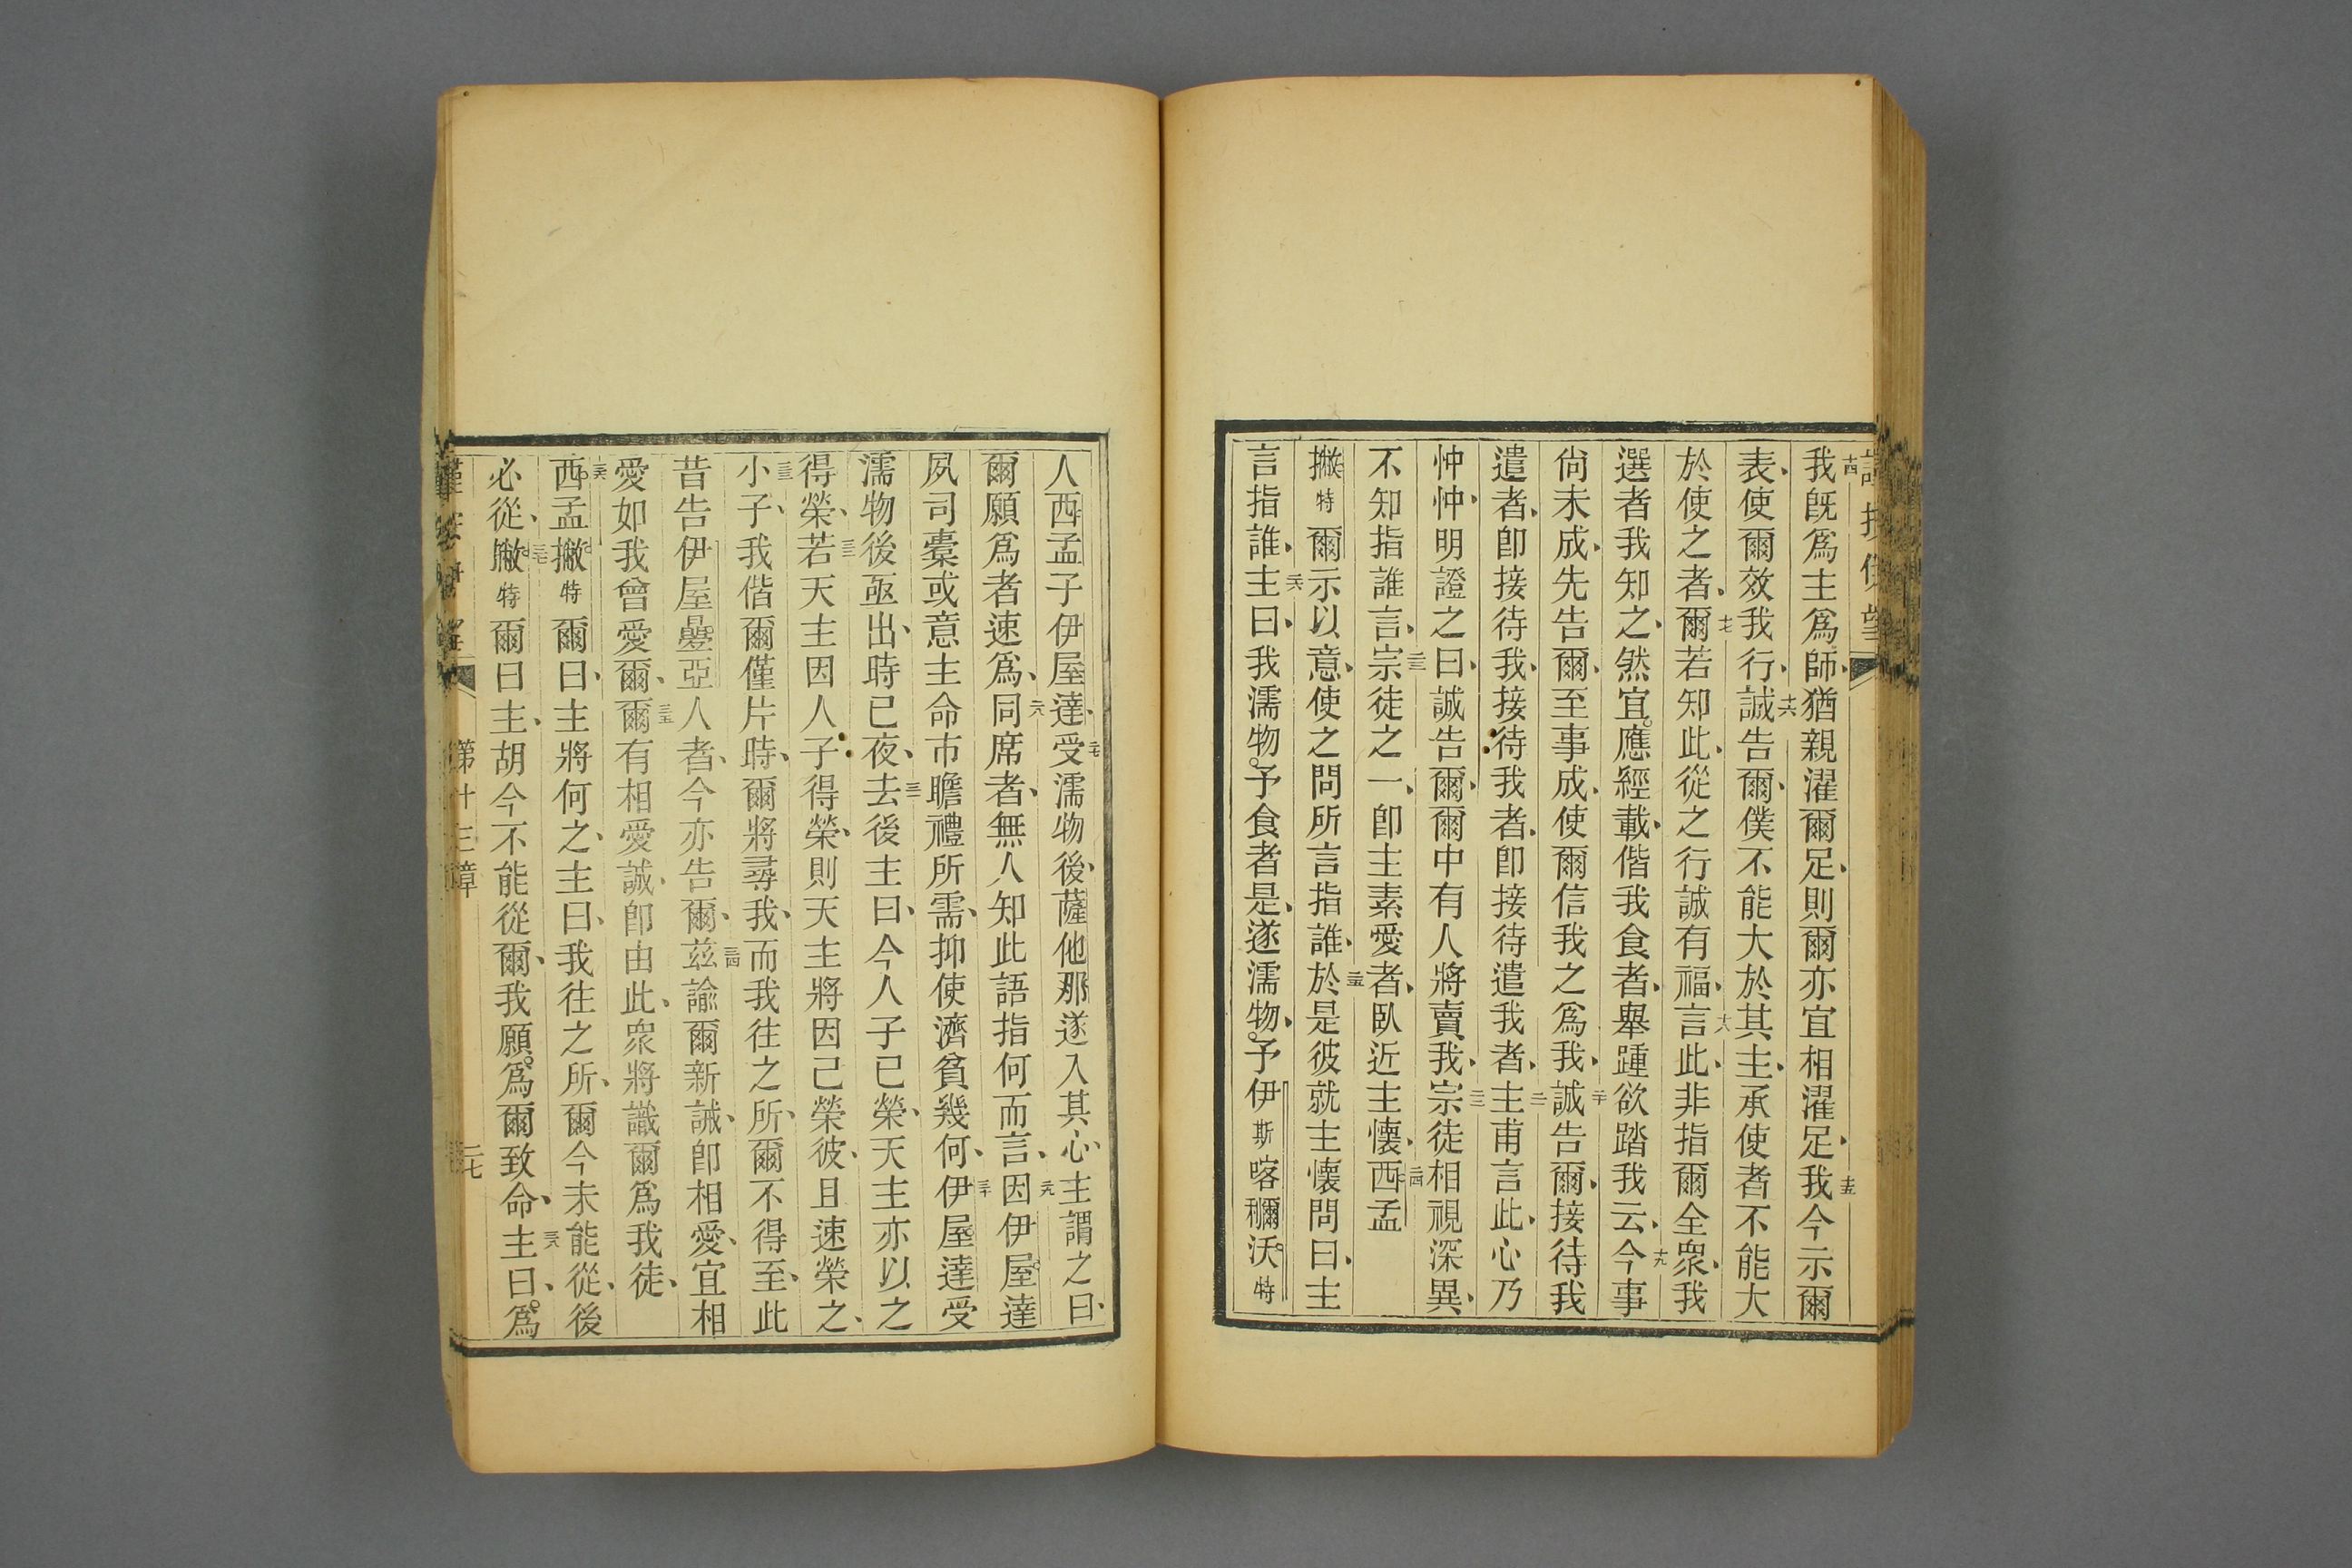 我既爲主爲師、猶親濯爾足、則爾亦宜相濯足、我今示爾
表、使爾效我行、誠告爾、僕不能大於其主、承使者不能大
於使之者、爾若知此、從之行誠有福、言此、非指爾全衆、我
選者我知之、然宜應經載、偕我食者、舉踵欲踏我云、今事
尙未成、先告爾、至事成、使爾信我之爲我、誠告爾、接待我
遣者、卽接待我、接待我者、卽接待遣我者、主甫言此、心乃
忡忡、明證之曰、誠告爾、爾中有人將賣我、宗徒相視深異、
不知指誰言、宗徒之一、卽主素愛者、臥近主懷、西孟
撇特爾示以意、使之問所言指誰、於是彼就主懷問曰、主
言指誰、主曰、我濡物予食者是、遂濡物、予伊斯喀穪沃特
人西孟子伊屋達、受濡物後、薩他那遂入其心主謂之曰、
爾願爲者速爲、同席者、無人知此語指何而言、因伊屋達
夙司橐或意主命市瞻禮所需、抑使濟貧幾何、伊屋達受
濡物後亟出、時已夜、去後主曰、今人子已榮、天主亦以之
得榮、若天主因人子得榮、則天主將因己榮彼、且速榮之、
小子、我偕爾僅片時、爾將尋我、而我往之所、爾不得至、此
昔告伊屋疊亞人者、今亦告爾、茲諭爾新誡、卽相愛、宜相
愛如我曾愛爾、爾有相愛誠、卽由此、衆將識爾爲我徒、
西孟撇特爾曰、主將何之、主曰、我往之所、爾今未能從、後
必從、撇特爾曰主、胡今不能從爾、我願爲爾致命、主曰、爲
第十三章
二七